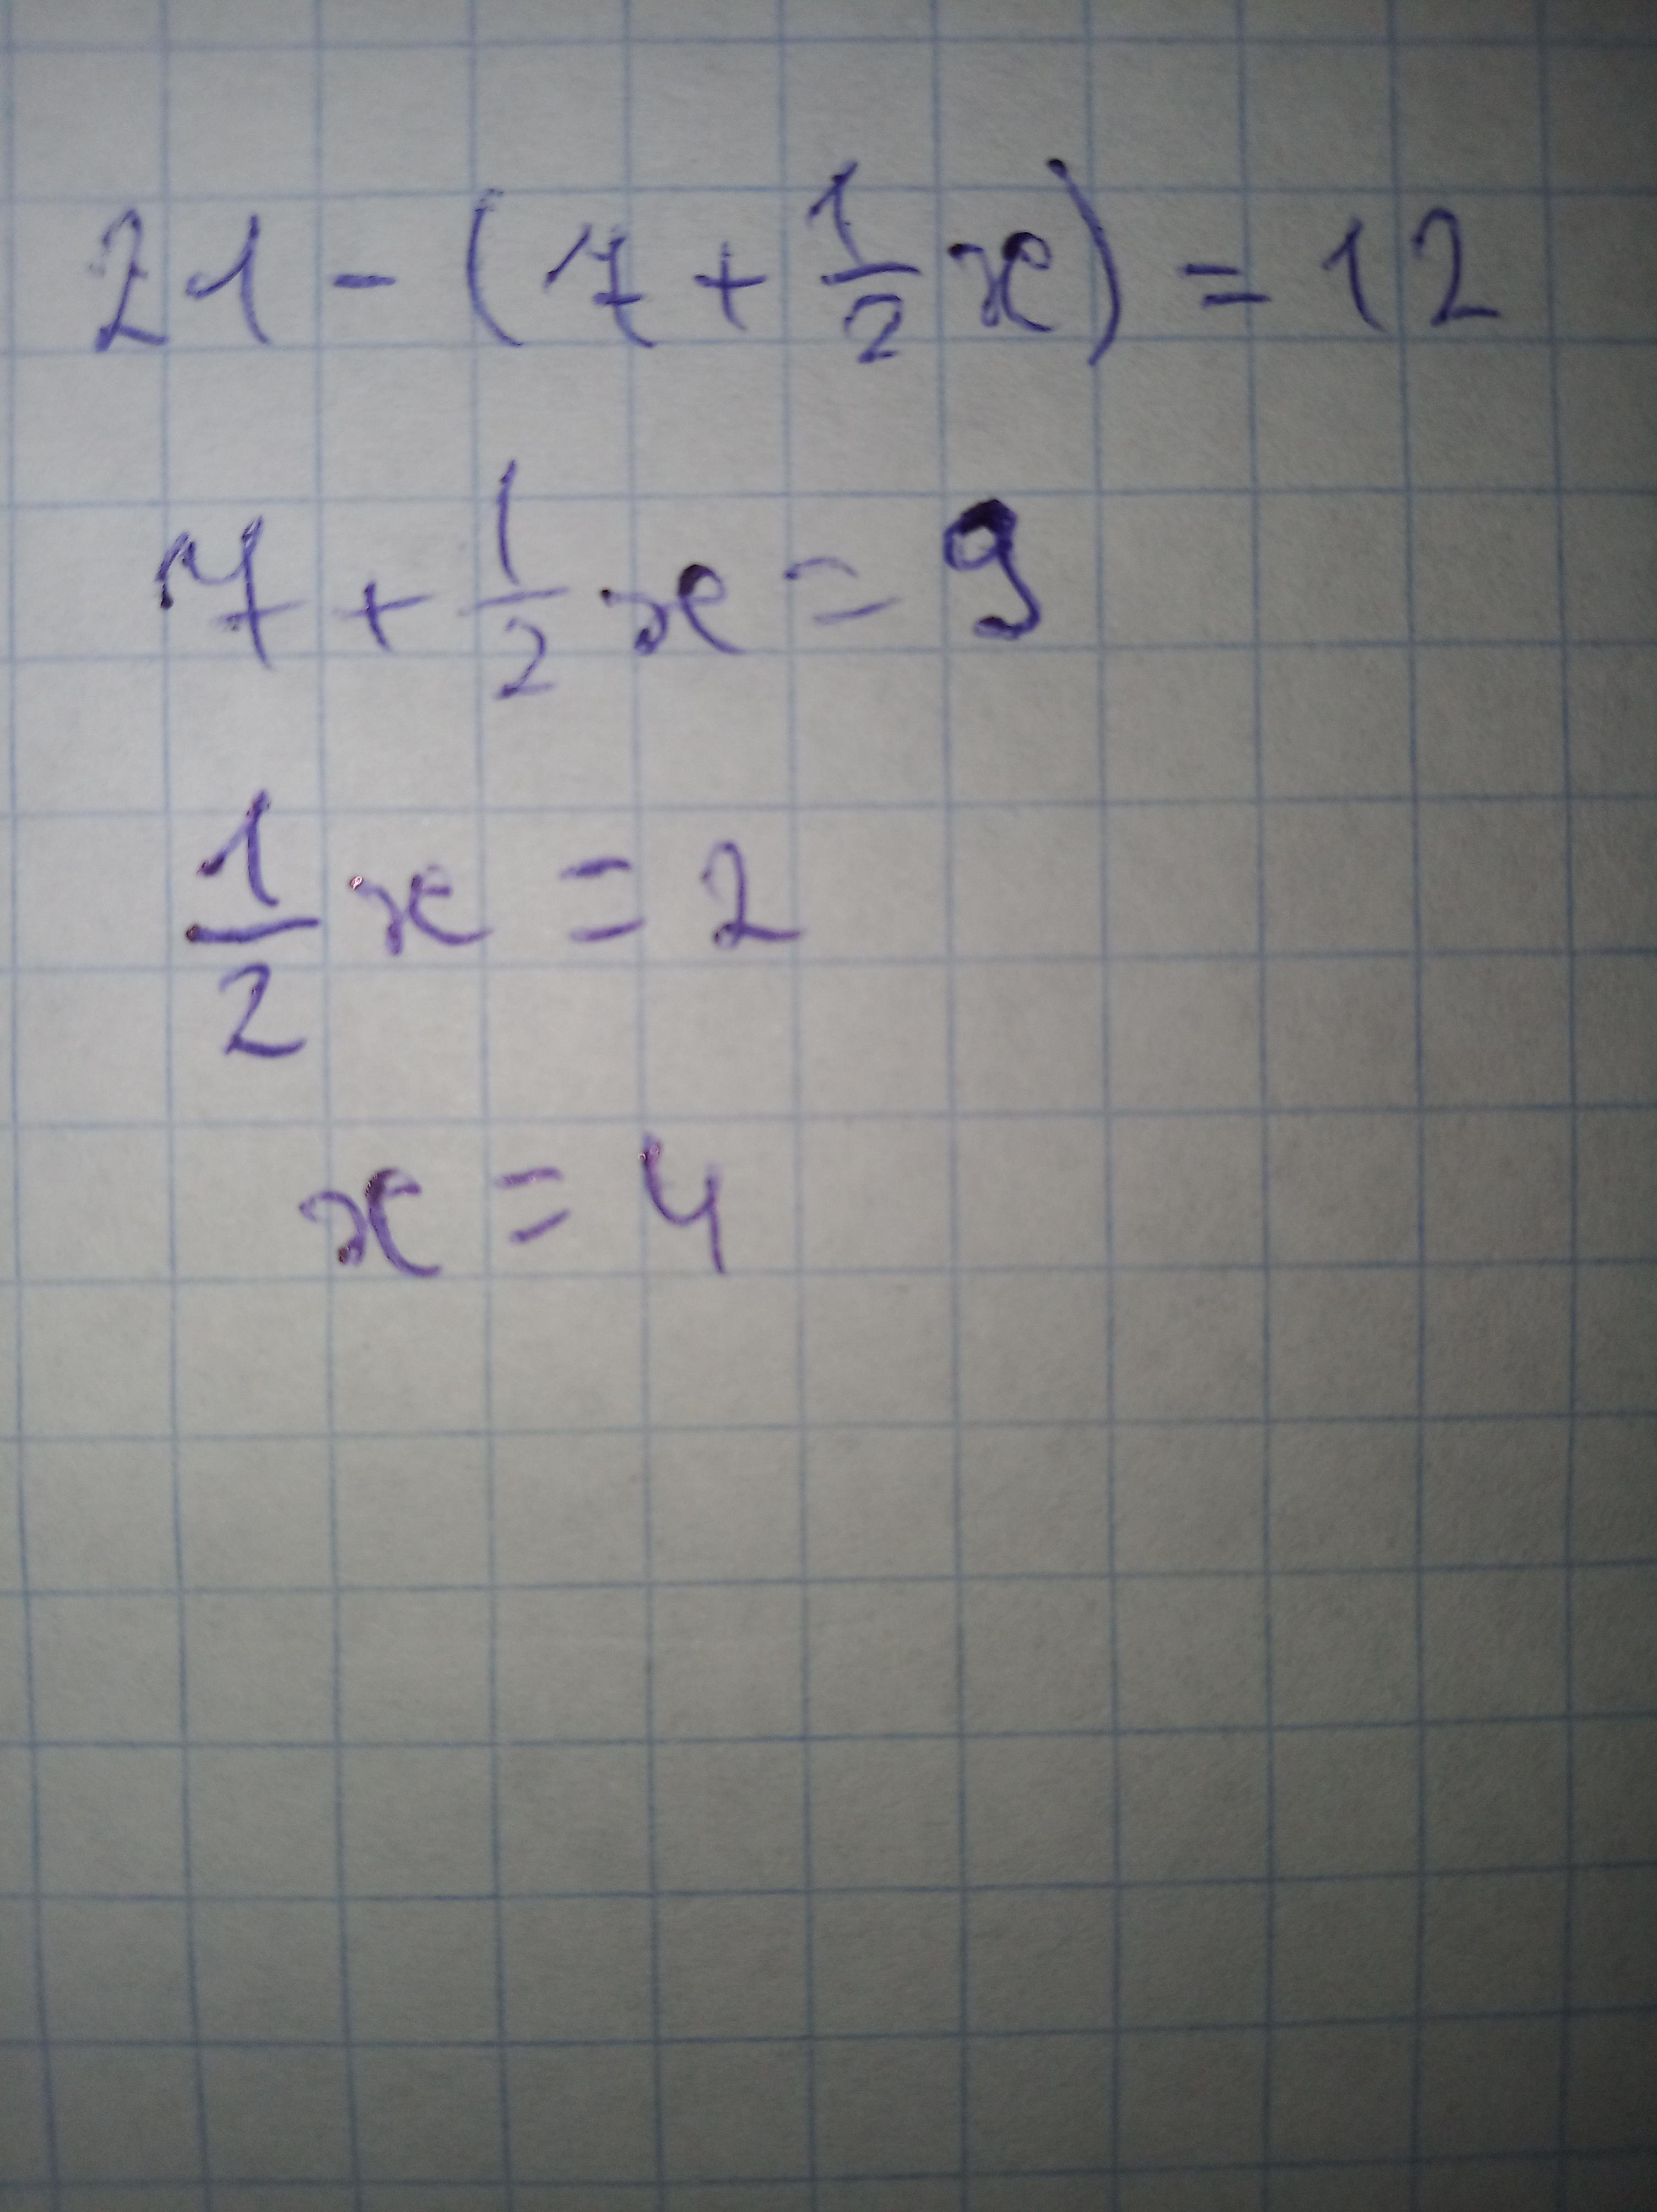 21 - (7 + 1/2 x) = 12
7 + 1/2 x = 9
1/2 x = 2
x = 4